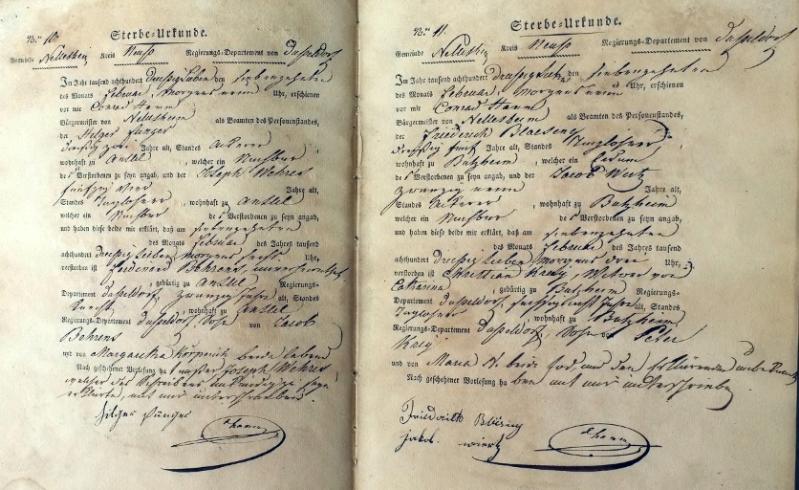 No. 10.
Sterbe-Urkunde.
Gemeinde Nettesheim Kreis Neuss Regierungs-Departement von Dusseldorf
Im Jahr tausend achthundert dreissig sieben den siebenzehnten
des Monats Februar, Morgens neun Uhr, erschienen
vor mir Conrad Hamm
Bürgermeister von Nettesheim als Beamten des Personenstandes,
der Hilger Jünger
dreissig zwei Jahre alt, Standes Ackerer
wohnhaft zu Anstel, welcher ein Nachbar
des Verstorbenen zu seyn angab, und der Joseph Wehres
fünfzig Jahre alt,
Standes Taglöhner, wohnhaft zu Anstel
welcher ein Nachbar des Verstorbenen zu seyn angab,
und haben diese beide mir erklärt, daß am siebenzehnten
des Monats Februar des Jahres tausend
achthundert dreissig sieben, morgens sechs Uhr,
verstorben ist Ferdinand Behrens,
gebürtig zu Anstel Regierungs-
Departement Dusseldorf, zwanzig Jahre alt, Standes
Knecht, wohnhaft zu Anstel
Regierungs-Departement Dusseldorf, Sohn von Jacob
Behrens
und von Margaretha beide
Nach geschehener Vorlesung hat Joseph Wehres
welcher des Schreibens zu seyn
erklärte, mit mir unterschrieben.
Hilger Jünger
Hamm
No. 11.
Sterbe-Urkunde.
Gemeinde Nettesheim Kreis Neuss Regierungs-Departement von Dusseldorf
Im Jahr tausend achthundert dreissig sieben den siebenzehnten
des Monats Februar, Morgens neun Uhr, erschienen
vor mir Conrad Hamm
Bürgermeister von Nettesheim als Beamten des Personenstandes,
der Friederich
dreissig fünf Jahre alt, Standes Taglöhner
wohnhaft zu Butzheim, welcher ein
des Verstorbenen zu seyn angab, und der Jacob
zwanzig neun Jahre alt,
Standes Ackerer, wohnhaft zu Butzheim
welcher ein Nachbar des Verstorbenen zu seyn angab,
und haben diese beide mir erklärt, daß am siebenzehnten
des Monats Februar des Jahres tausend
achthundert dreissig sieben, morgens drei Uhr,
verstorben ist Christian, Witwer von
Catharina, gebürtig zu Butzheim Regierungs-
Departement Dusseldorf, Jahre alt, Standes
Taglöhner, wohnhaft zu Butzheim
Regierungs-Departement Dusseldorf, Sohn von Peter
und von Maria N. beide tod und den unbekannt
Nach geschehener Vorlesung haben mit mir unterschrieben
Friedrich
Jakob
Hamm